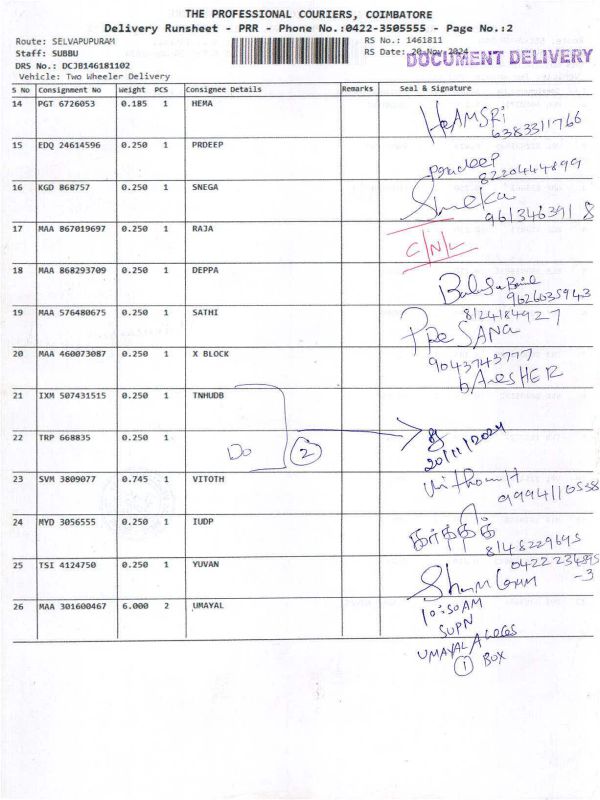 THE PROFESSIONAL COURIERS, COIMBATORE
Delivery Runsheet - PRR - Phone No.:0422-3505555 - Page No.:2
Route: SELVAPUPURAM
RS No.: 1461811
Staff: SUBBU
RS Date: 20-Nov-2024
DOCUMENT DELIVERY
DRS No.: DCJB146181102
Vehicle: Two Wheeler Delivery
S No Consignment No Weight PCS Consignee Details Remarks Seal & Signature
14 PGT 6726053 0.185 1 HEMA
HEAMSRI
6383311766
15 EDQ 24614596 0.250 1 PRDEEP
pradeep
8220444899
16 KGD 868757 0.250 1 SNEGA
Sneka
961346391 8
17 MAA 867019697 0.250 1 RAJA
C/N/L
18 MAA 868293709 0.250 1 DEPPA
9626035943
19 MAA 576480675 0.250 1 SATHI
8124184927
SANG
20 MAA 460073087 0.250 1 X BLOCK
9043743777
21 IXM 507431515 0.250 1 TNHUDB
22 TRP 668835 0.250 1
Do 2
20/11/2024
23 SVM 3809077 0.745 1 VITOTH
9994110538
24 MYD 3056555 0.250 1 IUDP
கார்த்திக்
8148229695
25 TSI 4124750 0.250 1 YUVAN
0422234895
-3
26 MAA 301600467 6.000 2 UMAYAL
10:50AM
SUPN
UMAYAL ALOGS
1 BOX